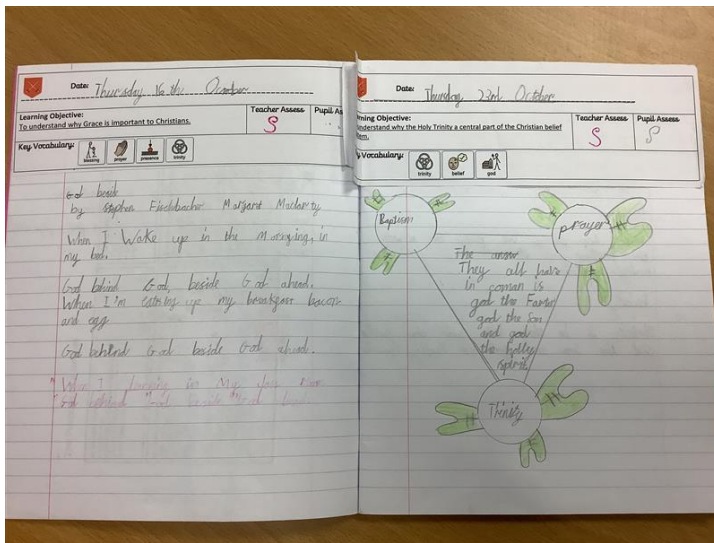 Date: Thursday 16th October
Learning Objective:
To understand why Grace is important to Christians.
Teacher Assess
S
Pupil As
Key Vocabulary:
blessing prayer presence trinity
God beside
by Stephen Fischbacher Margaret
When I Wake up in the Morning, in
my bed.
God behind God, beside God ahead.
When I'm eating up my breakfast bacon
and egg
God behind God beside God ahead.
When I in My
God behind God beside God
Date: Thursday 23rd October
ning Objective:
nderstand why the Holy Trinity a central part of the Christian belief
em.
Teacher Assess
S
Pupil Assess
S
y Vocabulary:
trinity belief god
Baptism
prayer
The
They all have
in coman is
god the
god the Son
and god
the holly
spirit
Trinity